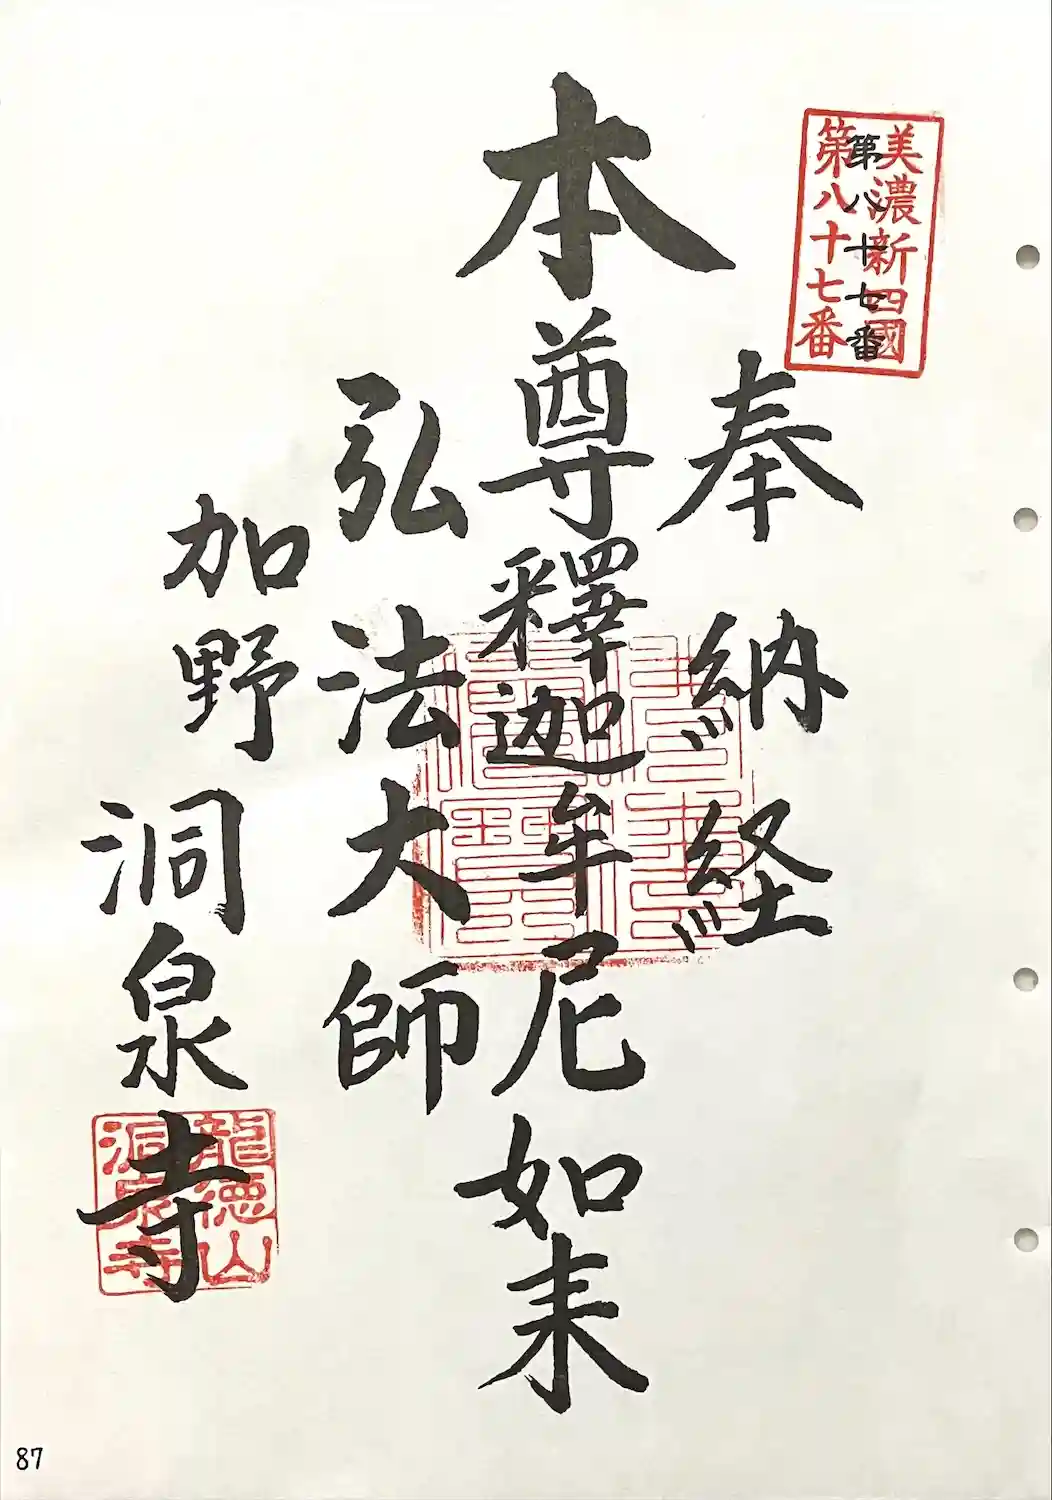 美濃新四國
第八十七番
第八十七番
奉納経
本尊釋迦牟尼如来
弘法大師
加野洞泉寺
龍徳山
洞泉寺
87